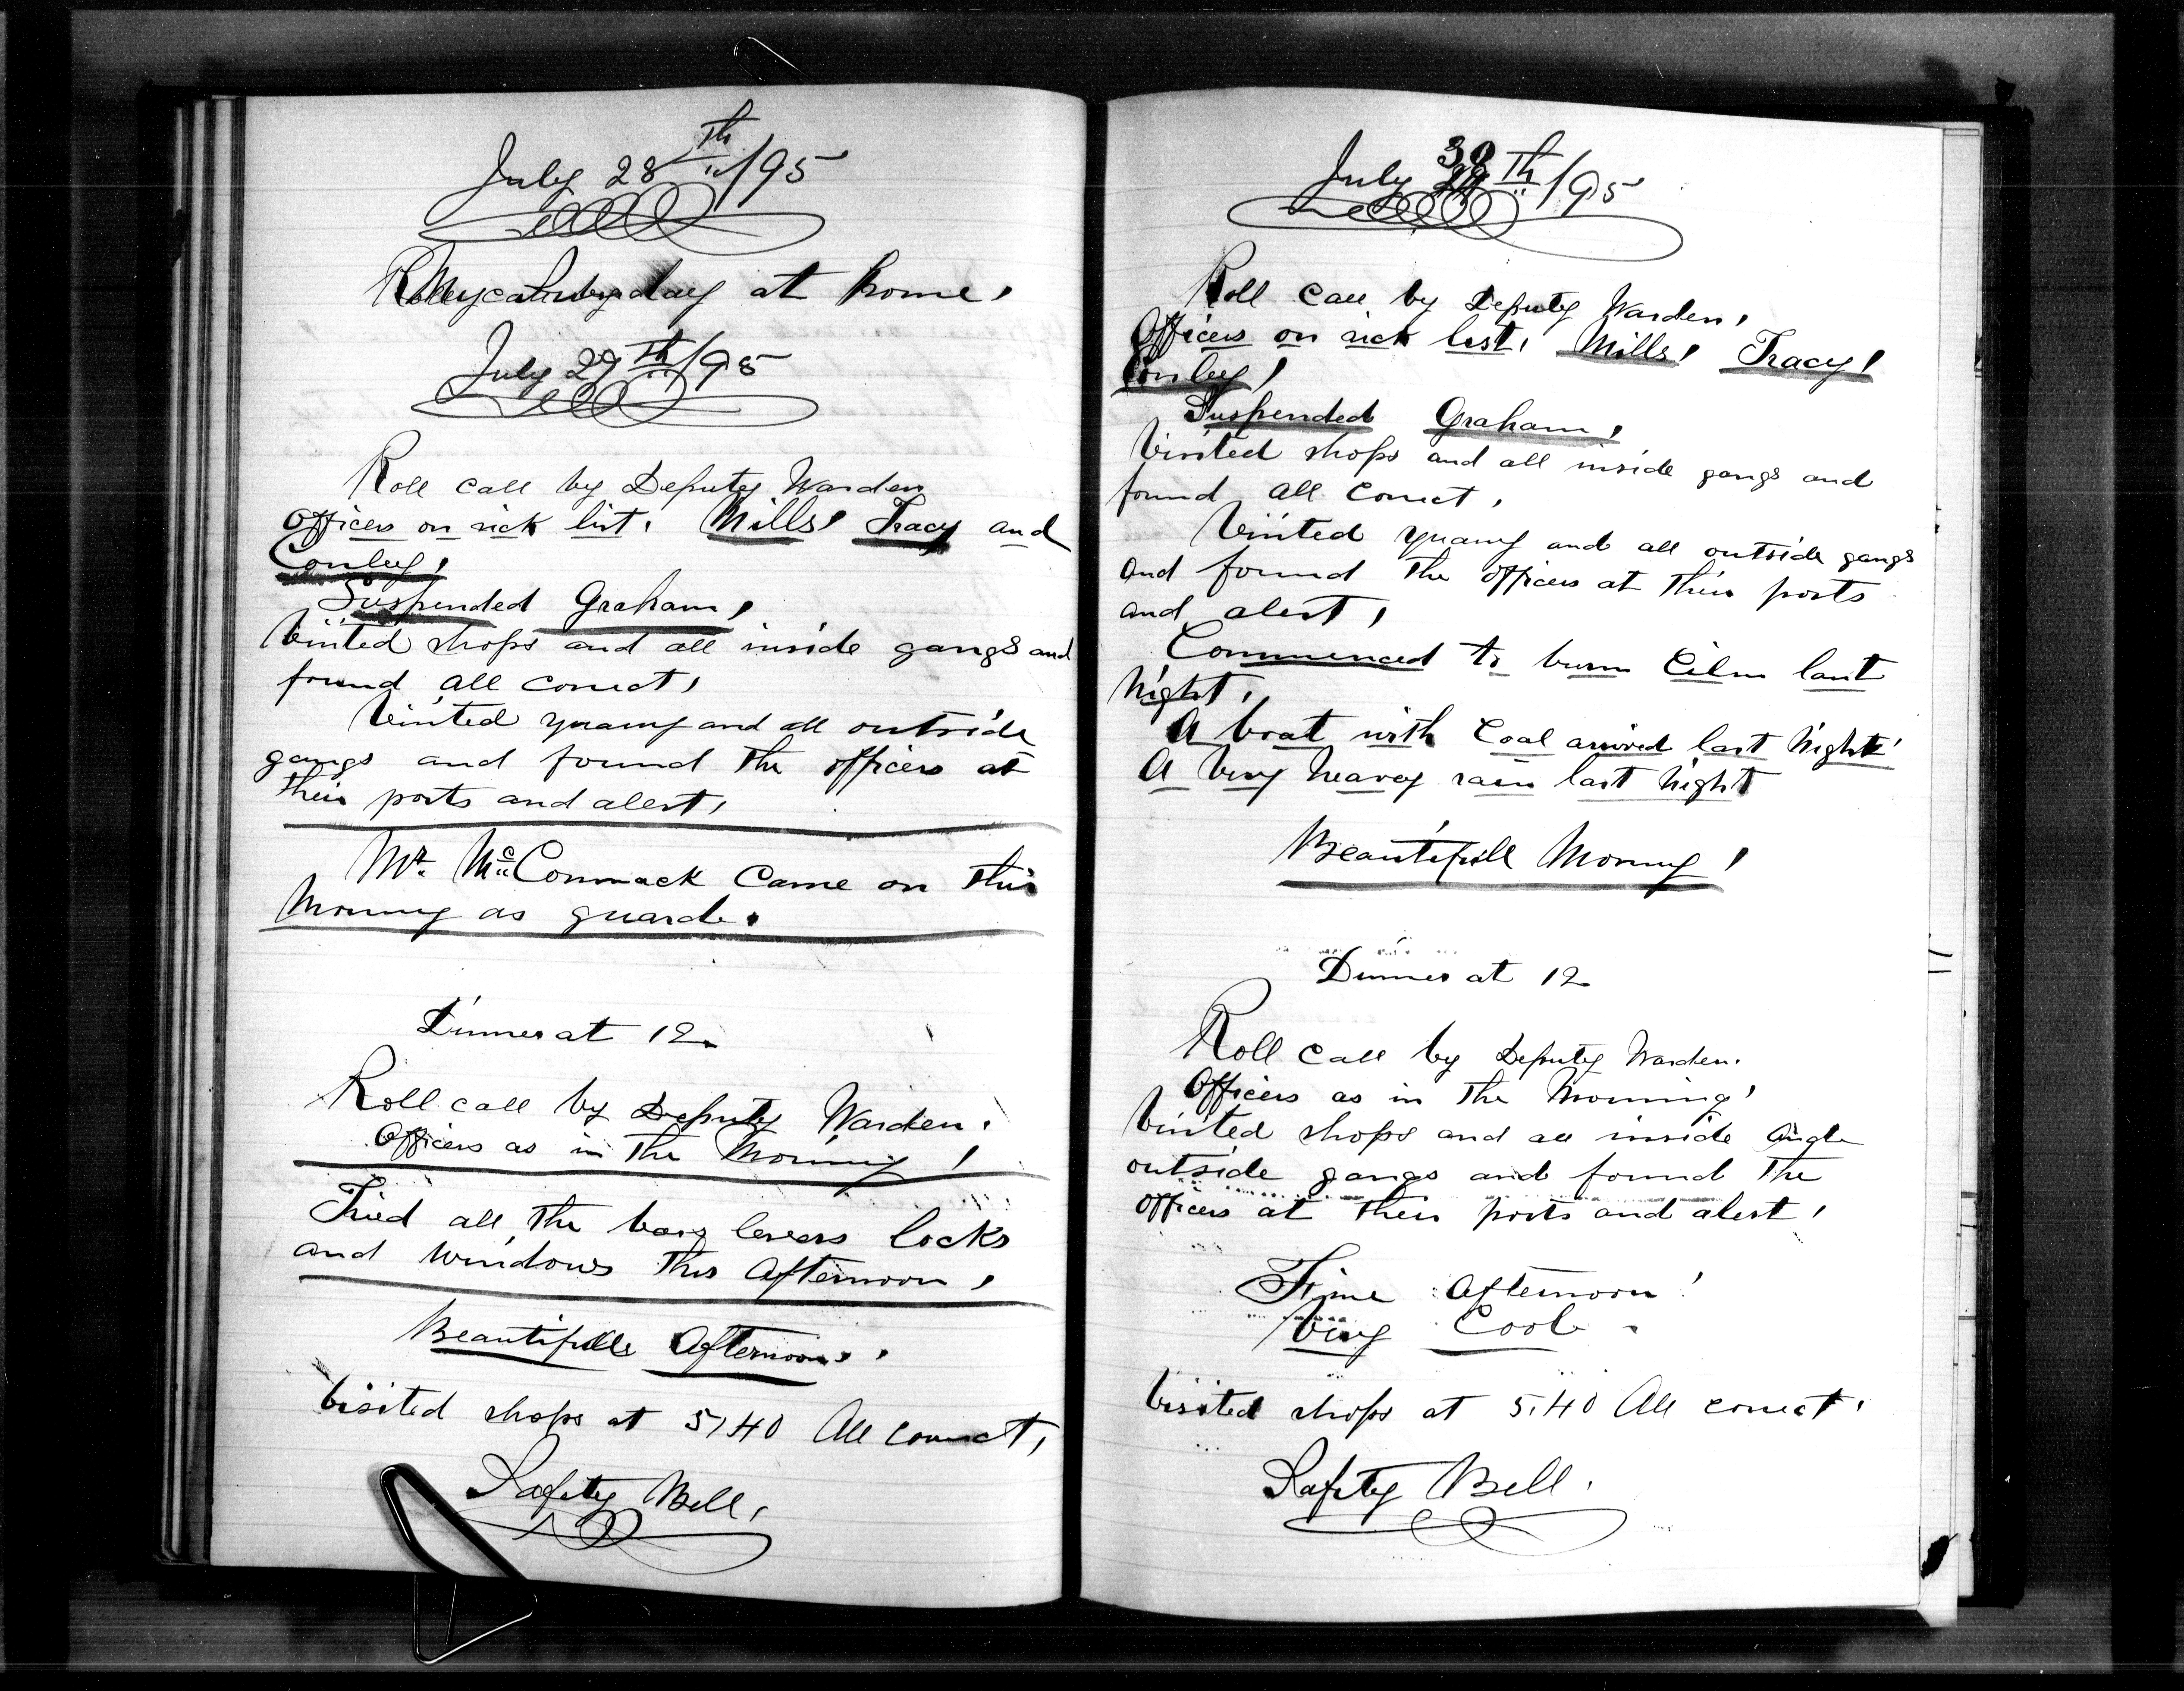 July 28th/95
My Sunday at home,
July 29th/95
Roll call by Deputy Warden
Officers on sick list. Mills, Tracy and
Conley,
Suspended Graham,
Visited shops and all inside gangs and
found all correct,
Visited quarry and all outside
gangs and found the officers at
their posts and alert,
Mr. McCormack Came on this
Morning as guard.
Dinner at 12.
Roll call by Deputy Warden.
Officers as in the Morning!
Tried all the bars levers locks
and windows this afternoon,
Beautifull Afternoon,
Visited shops at 5,40 All correct,
Safety Bell,
July 30th/95
Roll call by Deputy Warden,
Officers on sick list, Mills, Tracy,
Conley,
Suspended Graham,
Visited shops and all inside gangs and
found all correct,
Visited quarry and all outside gangs
and found the officers at their posts
and alert,
Commenced to burn last
Night,
A boat with Coal arrived last Night
A Very heavy rain last Night
Beautifull Morning!
Dinner at 12
Roll call by Deputy Warden.
Officers as in the Morning!
Visited shops and all inside and
outside gangs and found the
officers at their posts and alert,
Fine afternoon!
Very Cool
Visited shops at 5.40 All correct,
Safety Bell.